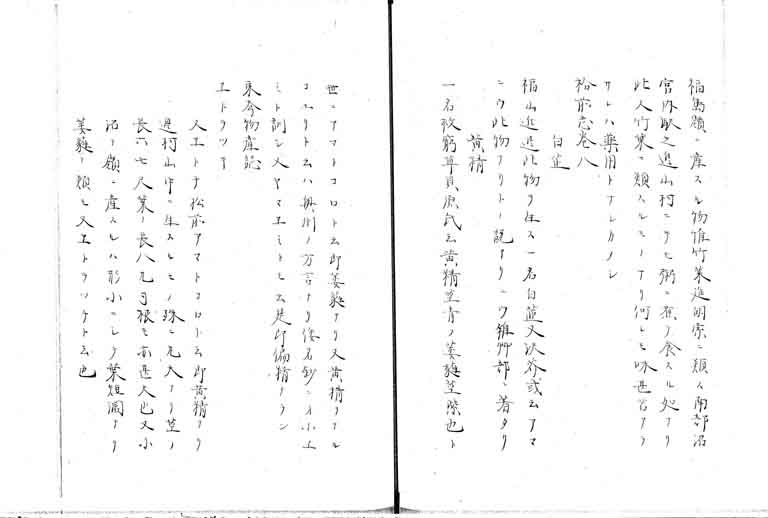 福島領ニ産スル物惟竹葉進胡索ニ類ス南部沼
宮内駅之近山村ニテモ粥ニ煮テ食スル処アリ
此人竹葉ニ類スルモノアリ何レモ味甚苦フシ
サレハ薬用トナシカタシ
松前志巻八
白芷
福山近辺此物ヲ生ス一名白茝又沃芥或云アマ
ニウ此物ナリトノ説アリニウ雑艸部ニ著タリ
黄精
一名救窮草貝原氏云黄精茎青ク萎蕤茎紫也ト
世ニアマトコロト云即萎蕤ナリ又黄精ヲヱル
コエリト云ハ奥州ノ方言ナリ倭名鈔ニオホエ
ミト訓シ又ヤマエミトモ云是即偏精ナラン
東夷物産記
エトラツフ
人エトナ松前アマトコロト云即黄精ナリ
辺村山中ニ生スルモノ殊ニ光大ナリ茎ノ
長六七尺葉ノ長八九寸根モ亦甚大也又小
沼ノ嶺ニ産スルハ形小ニシテ葉短濶ナリ
萎蕤ノ類モ又エトラツケト云也